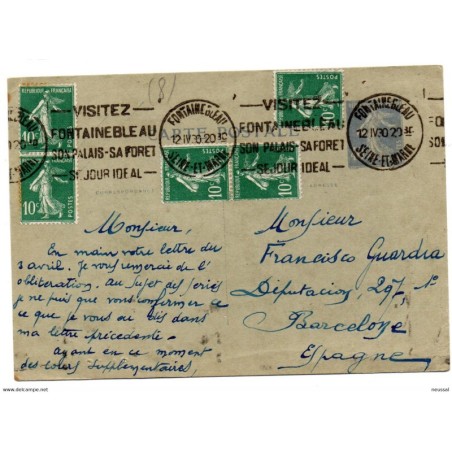 (8)
REPUBLIQUE FRANÇAISE
10c
POSTES
10c
POSTES
VISITEZ
FONTAINEBLEAU
SON PALAIS-SA FORET
SEJOUR IDEAL
CARTE POSTALE
FONTAINEBLEAU
12 IV 30 20 H
SEINE-ET-MARNE
10c
10c
POSTES
POSTES
10c
VISITEZ
FONTAINEBLEAU
SON PALAIS-SA FORET
SEJOUR IDEAL
FONTAINEBLEAU
12 IV 30 20 H
SEINE-ET-MARNE
Monsieur,
En main votre lettre du
3 avril. Je vous remercie de l'
obliteration. au sujet des series
je ne puis que vous confirmer ce
ce que je vous ai dis dans
ma lettre precedente.
ayant en ce moment
des colors supplementaires,
Monsieur
Francisco Guardia
Diputacion, 297,
Barcelone
Espagne